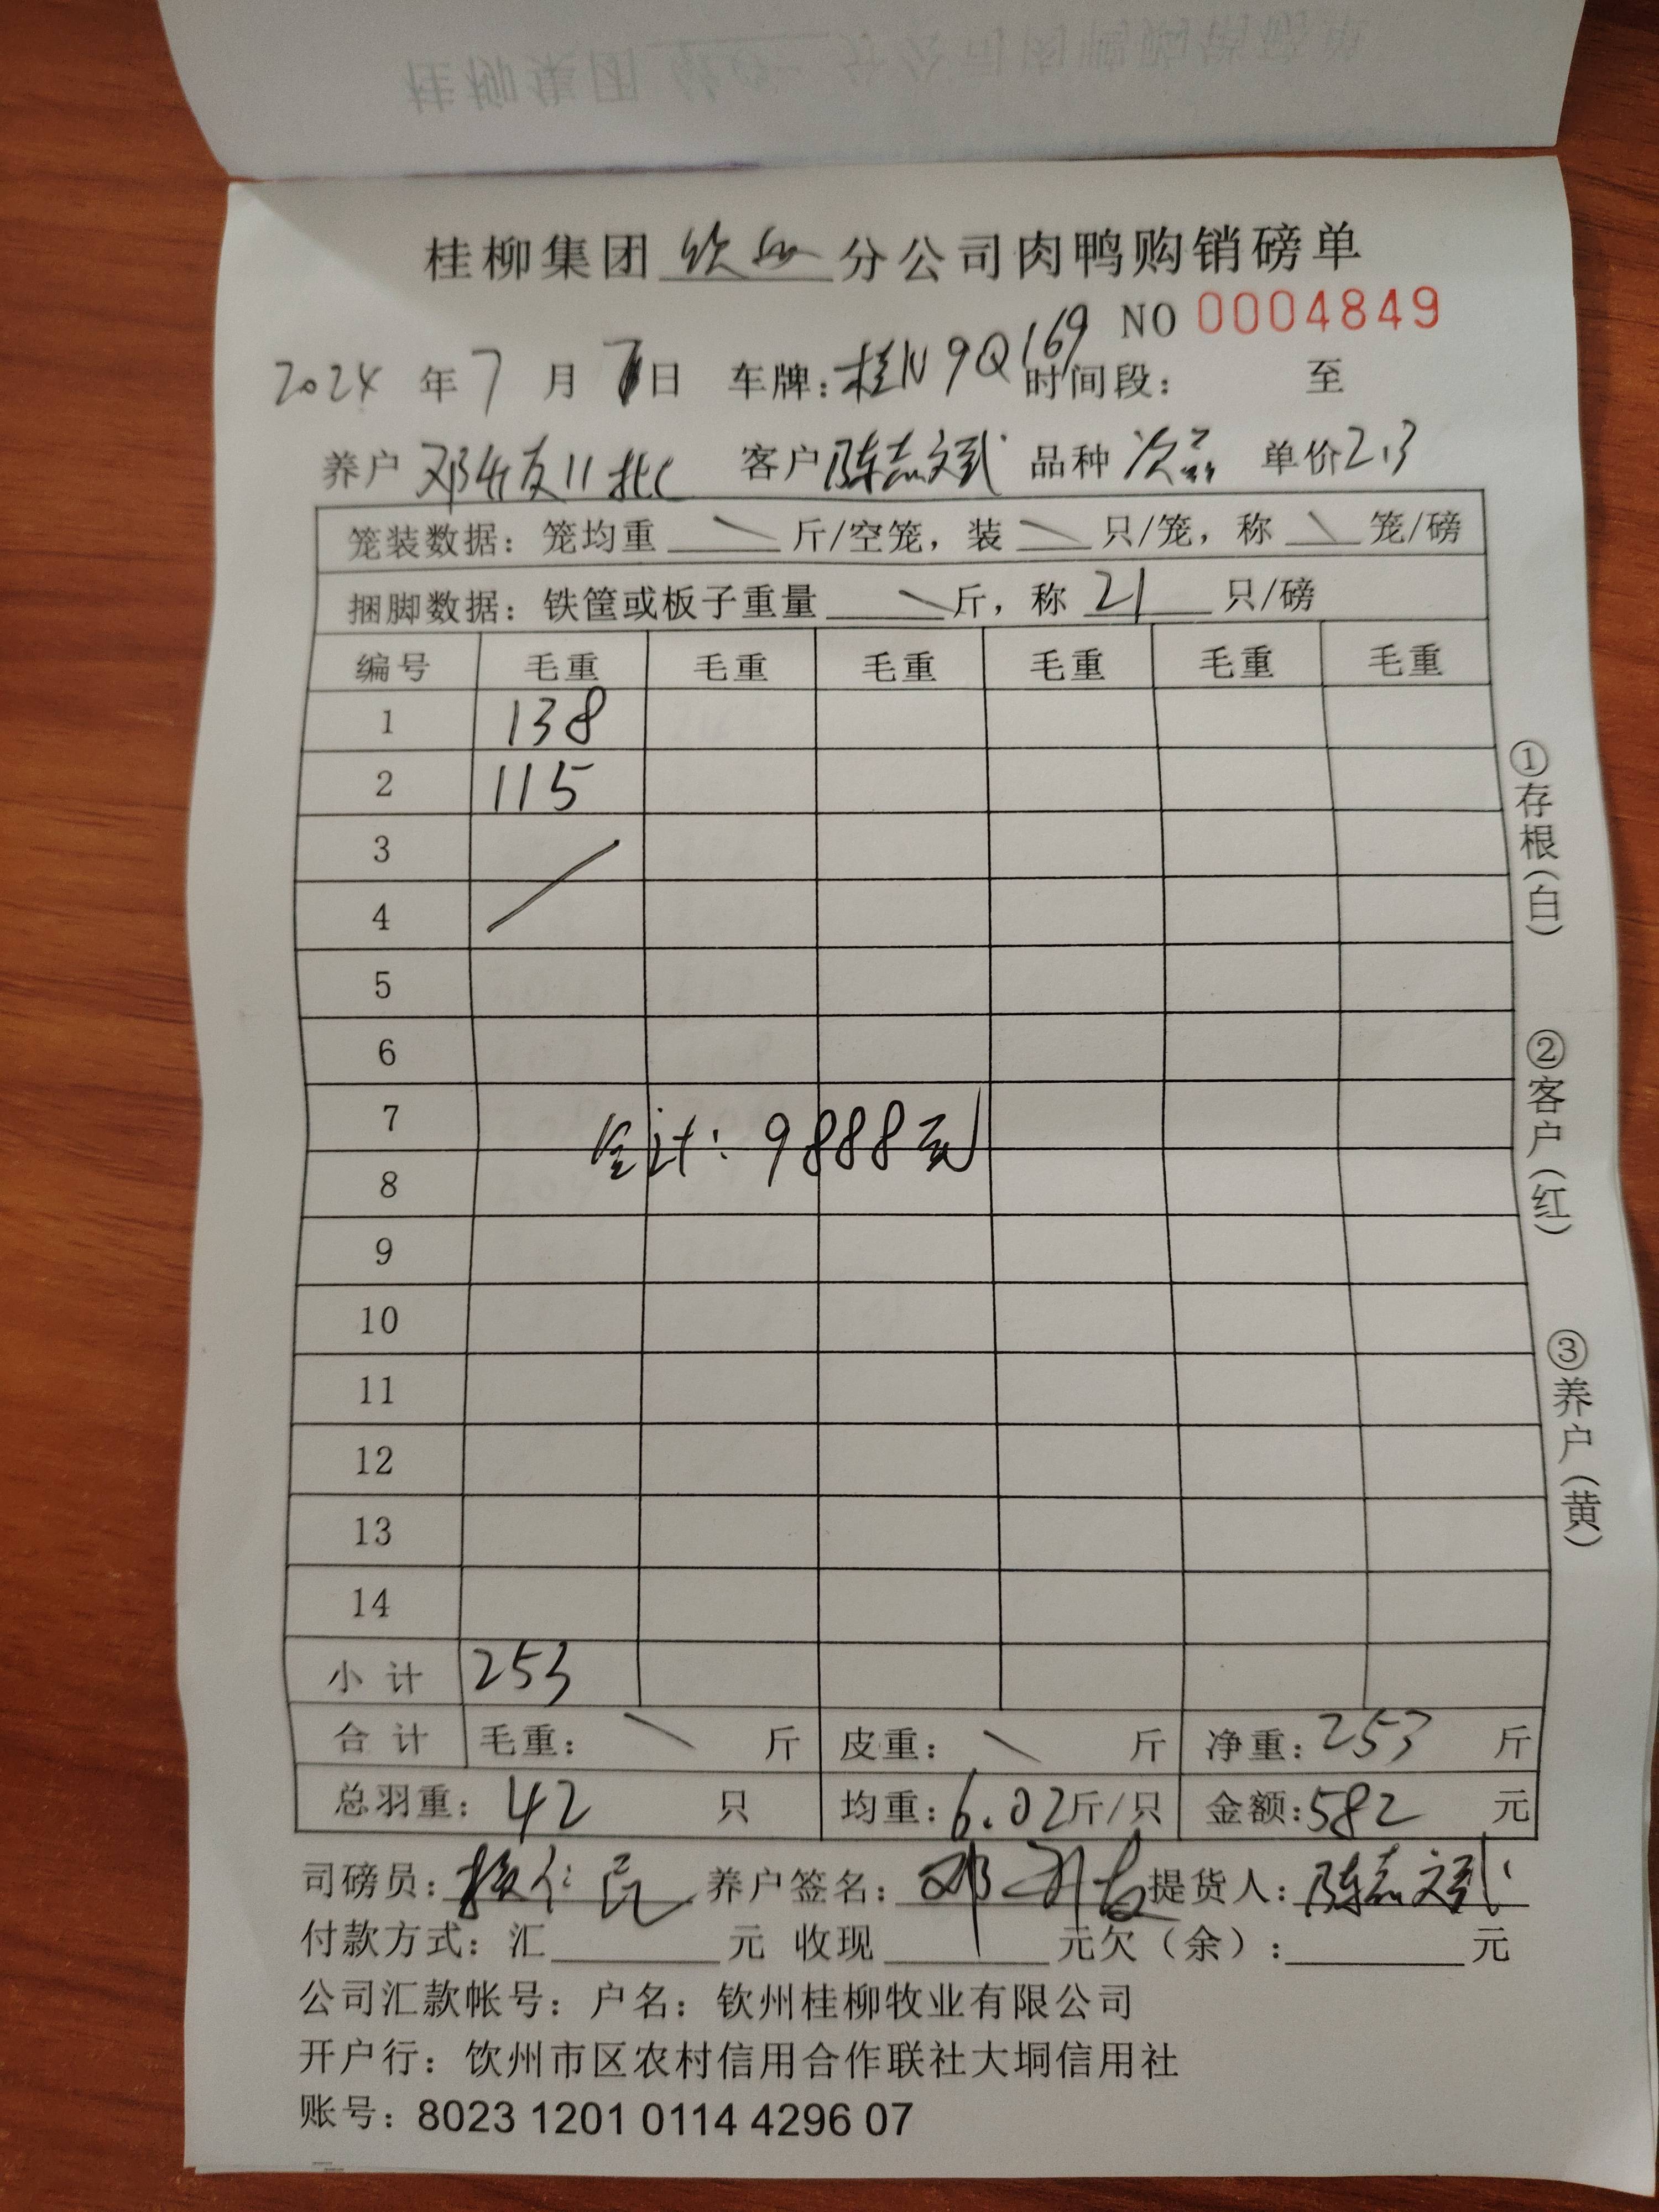 桂柳集团 钦州 分公司肉鸭购销磅单
NO 0004849
2024 年 7 月 7 日 车牌：桂N9Q169 时间段： 至
养户 客户 陈志斌 品种 次品 单价 2.3
笼装数据：笼均重 斤/空笼，装 只/笼，称 笼/磅
捆脚数据：铁筐或板子重量 斤，称 21 只/磅
编号 毛重 毛重 毛重 毛重 毛重 毛重
1 138
2 115
3
4
5
6
7
合计：9888元
8
9
10
11
12
13
14
小计 253
合计 毛重： 斤 皮重： 斤 净重：253 斤
总羽重：42 只 均重：6.02斤/只 金额：582 元
司磅员： 养户签名： 提货人：陈志斌
付款方式：汇 元 收现 元欠（余）： 元
公司汇款帐号：户名：钦州桂柳牧业有限公司
开户行：钦州市区农村信用合作联社大垌信用社
账号：8023 1201 0114 4296 07
①存根（白）
②客户（红）
③养户（黄）